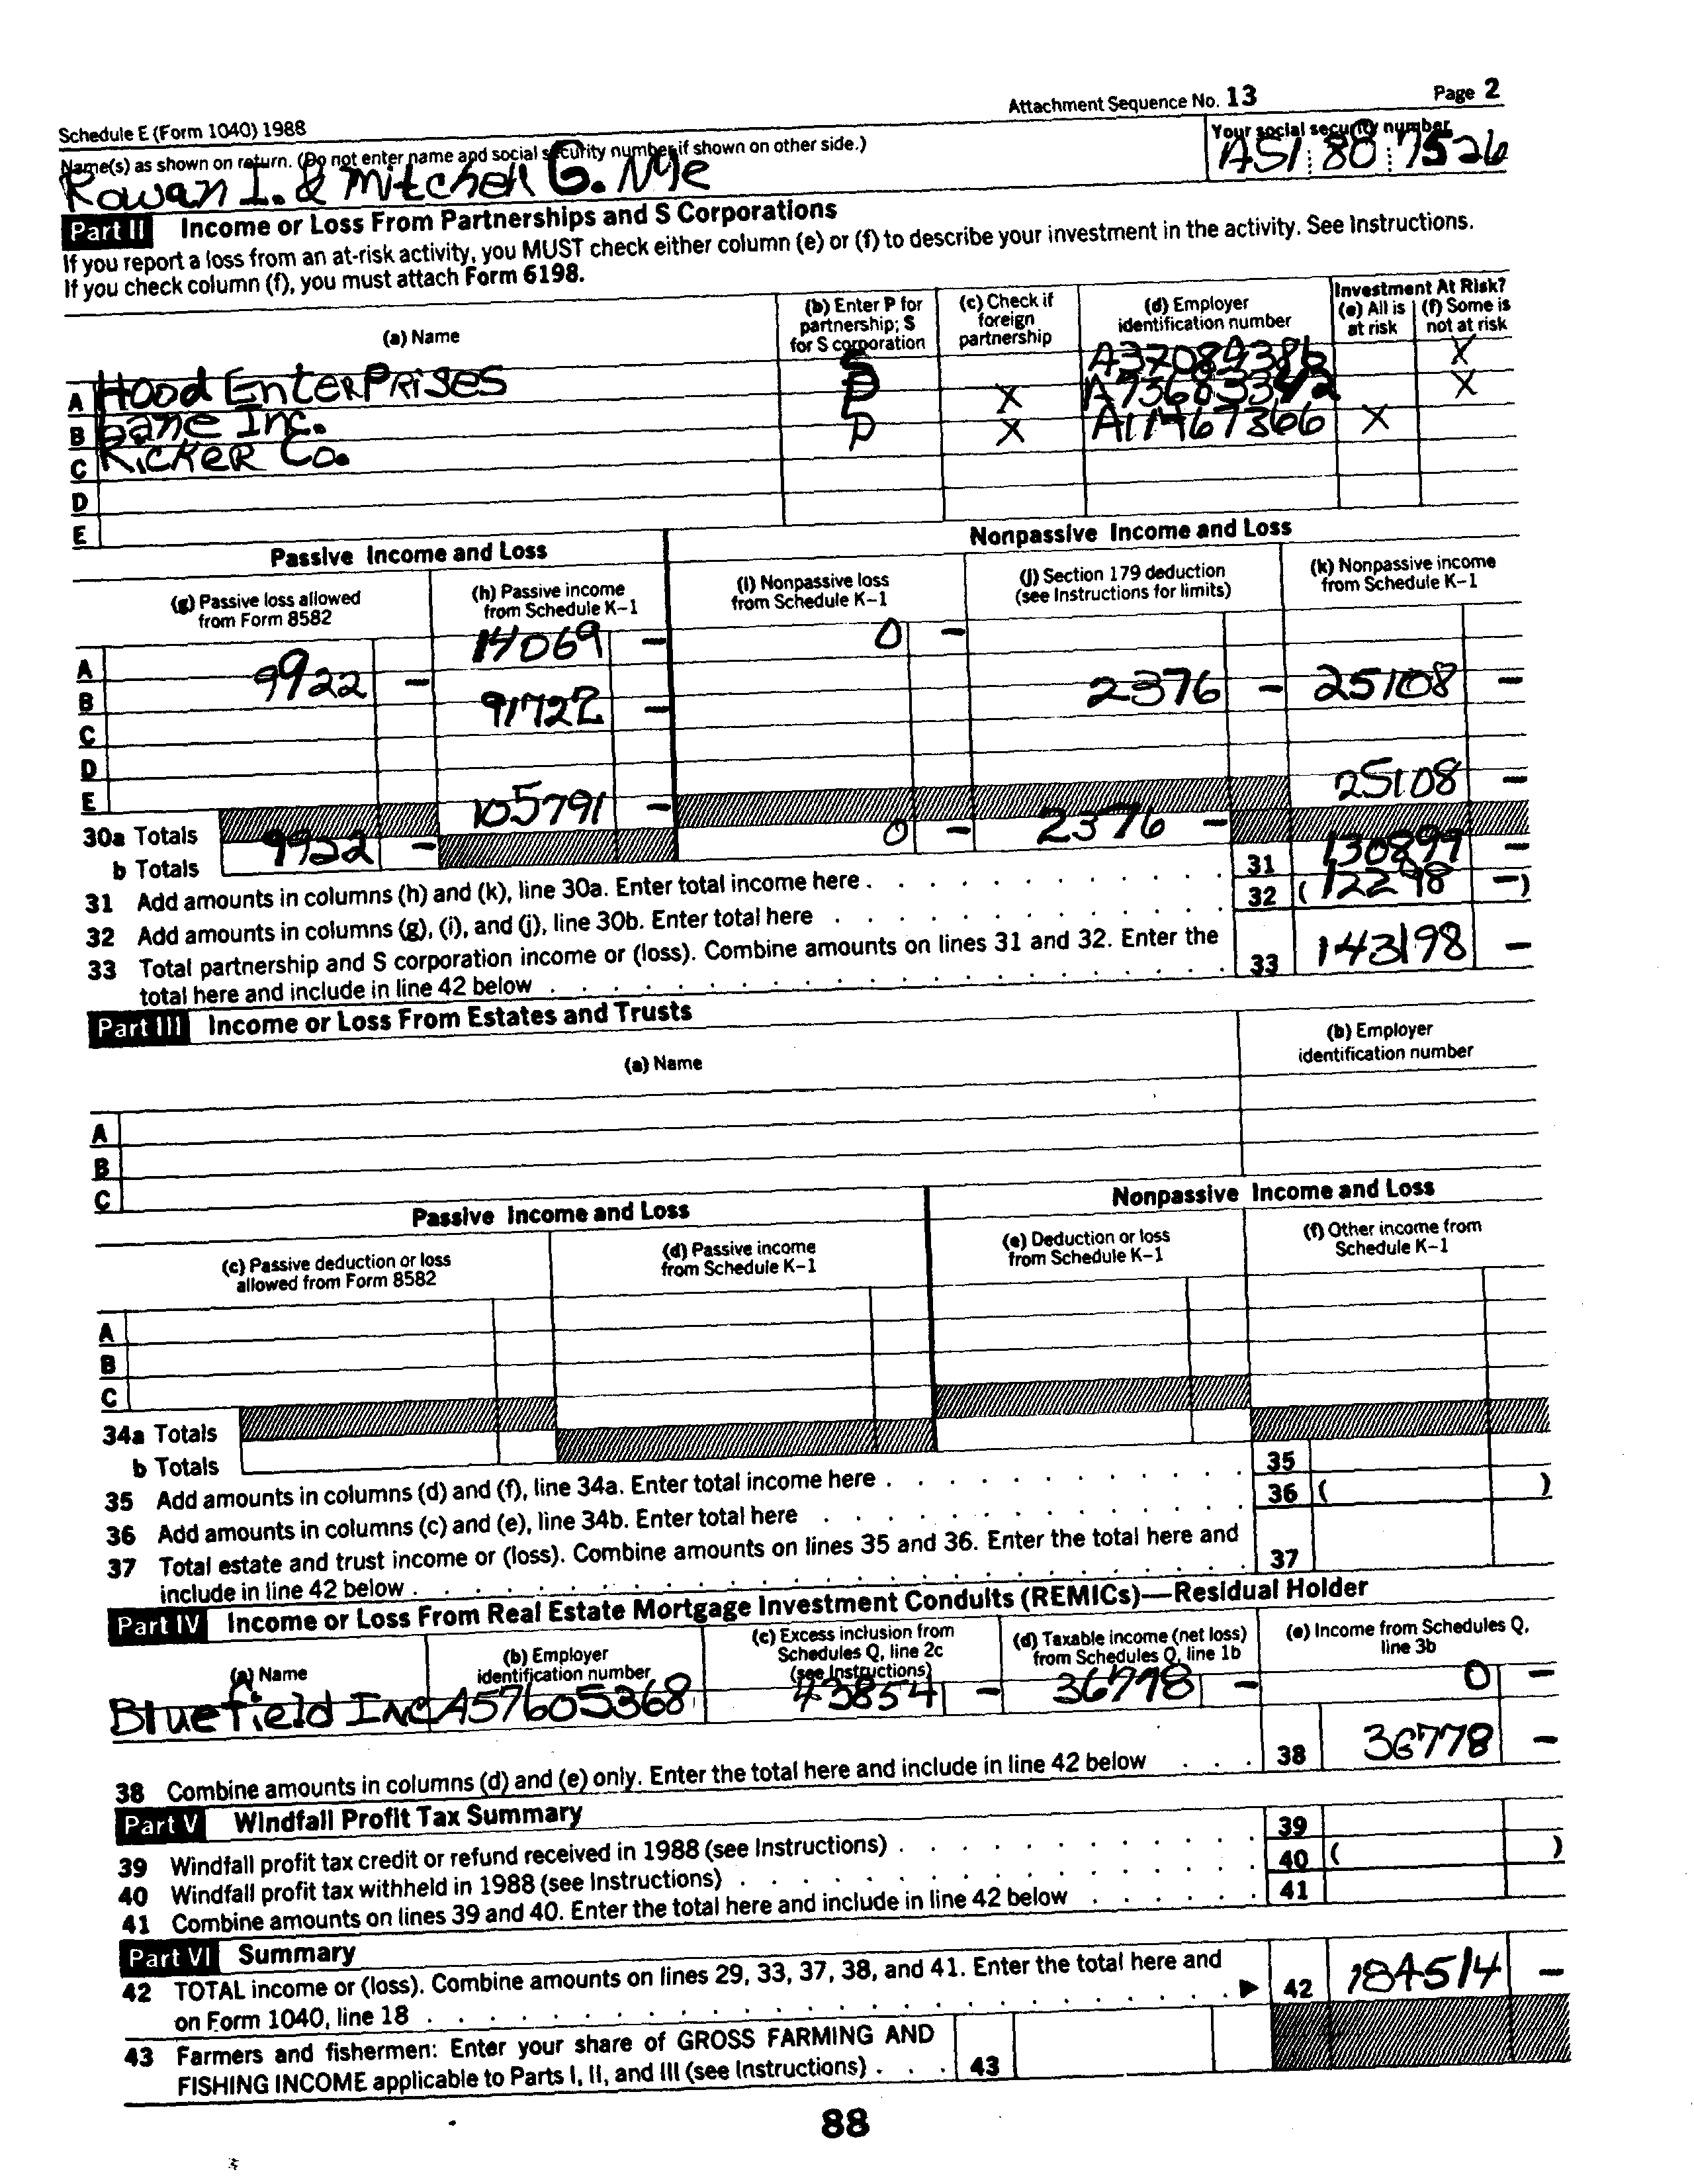 Schedule E (Form 1040) 1988 Attachment Sequence No. 13 Page 2
Name(s) as shown on return. (Do not enter name and social security number if shown on other side.) Your social security number
Rowan I. & Mitchell G. Nye A51 80 7526
Part II Income or Loss From Partnerships and S Corporations
If you report a loss from an at-risk activity, you MUST check either column (e) or (f) to describe your investment in the activity. See Instructions.
If you check column (f), you must attach Form 6198.
(a) Name (b) Enter P for partnership; S for S corporation (c) Check if foreign partnership (d) Employer identification number Investment At Risk? (e) All is at risk (f) Some is not at risk
A Hood EnterPrises S A37084386 X
B Lane Inc. P X A73683342 X
C Ricker Co. P X A11467366 X
D
E
Passive Income and Loss Nonpassive Income and Loss
(g) Passive loss allowed from Form 8582 (h) Passive income from Schedule K–1 (i) Nonpassive loss from Schedule K–1 (j) Section 179 deduction (see Instructions for limits) (k) Nonpassive income from Schedule K–1
A 14069 – 0 –
B 9922 – 2376 – 25108 –
C 91722 –
D
E
30a Totals 105791 – 25108 –
b Totals 9922 – 0 – 2376 –
31 Add amounts in columns (h) and (k), line 30a. Enter total income here . 31 130899 –
32 Add amounts in columns (g), (i), and (j), line 30b. Enter total here 32 ( 12298 – )
33 Total partnership and S corporation income or (loss). Combine amounts on lines 31 and 32. Enter the
total here and include in line 42 below 33 143198 –
Part III Income or Loss From Estates and Trusts
(a) Name (b) Employer identification number
A
B
C
Passive Income and Loss Nonpassive Income and Loss
(c) Passive deduction or loss allowed from Form 8582 (d) Passive income from Schedule K–1 (e) Deduction or loss from Schedule K–1 (f) Other income from Schedule K–1
A
B
C
34a Totals
b Totals
35 Add amounts in columns (d) and (f), line 34a. Enter total income here . 35
36 Add amounts in columns (c) and (e), line 34b. Enter total here 36 ( )
37 Total estate and trust income or (loss). Combine amounts on lines 35 and 36. Enter the total here and
include in line 42 below . 37
Part IV Income or Loss From Real Estate Mortgage Investment Conduits (REMICs)—Residual Holder
(a) Name (b) Employer identification number (c) Excess inclusion from Schedules Q, line 2c (see Instructions) (d) Taxable income (net loss) from Schedules Q, line 1b (e) Income from Schedules Q, line 3b
Bluefield Inc A57605368 43854 – 36778 – 0 –
38 Combine amounts in columns (d) and (e) only. Enter the total here and include in line 42 below 38 36778 –
Part V Windfall Profit Tax Summary
39 Windfall profit tax credit or refund received in 1988 (see Instructions) . 39
40 Windfall profit tax withheld in 1988 (see Instructions) . 40 ( )
41 Combine amounts on lines 39 and 40. Enter the total here and include in line 42 below 41
Part VI Summary
42 TOTAL income or (loss). Combine amounts on lines 29, 33, 37, 38, and 41. Enter the total here and
on Form 1040, line 18 . ▶ 42 184514 –
43 Farmers and fishermen: Enter your share of GROSS FARMING AND
FISHING INCOME applicable to Parts I, II, and III (see Instructions) . 43
88